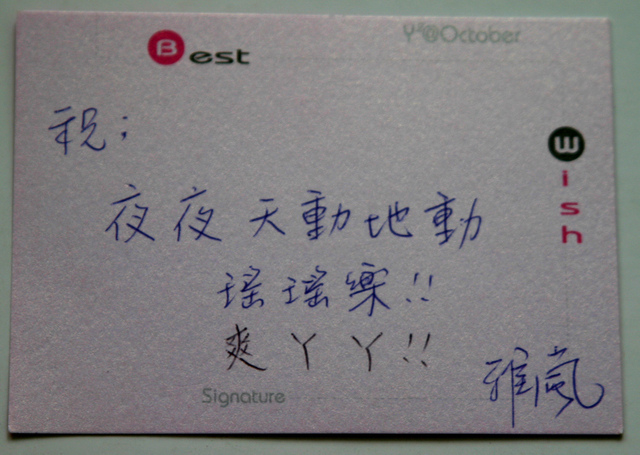 Best
Y²@October
祝；
Wish
夜夜天動地動
瑤瑤樂!!
爽丫丫!!
雅嵐
Signature